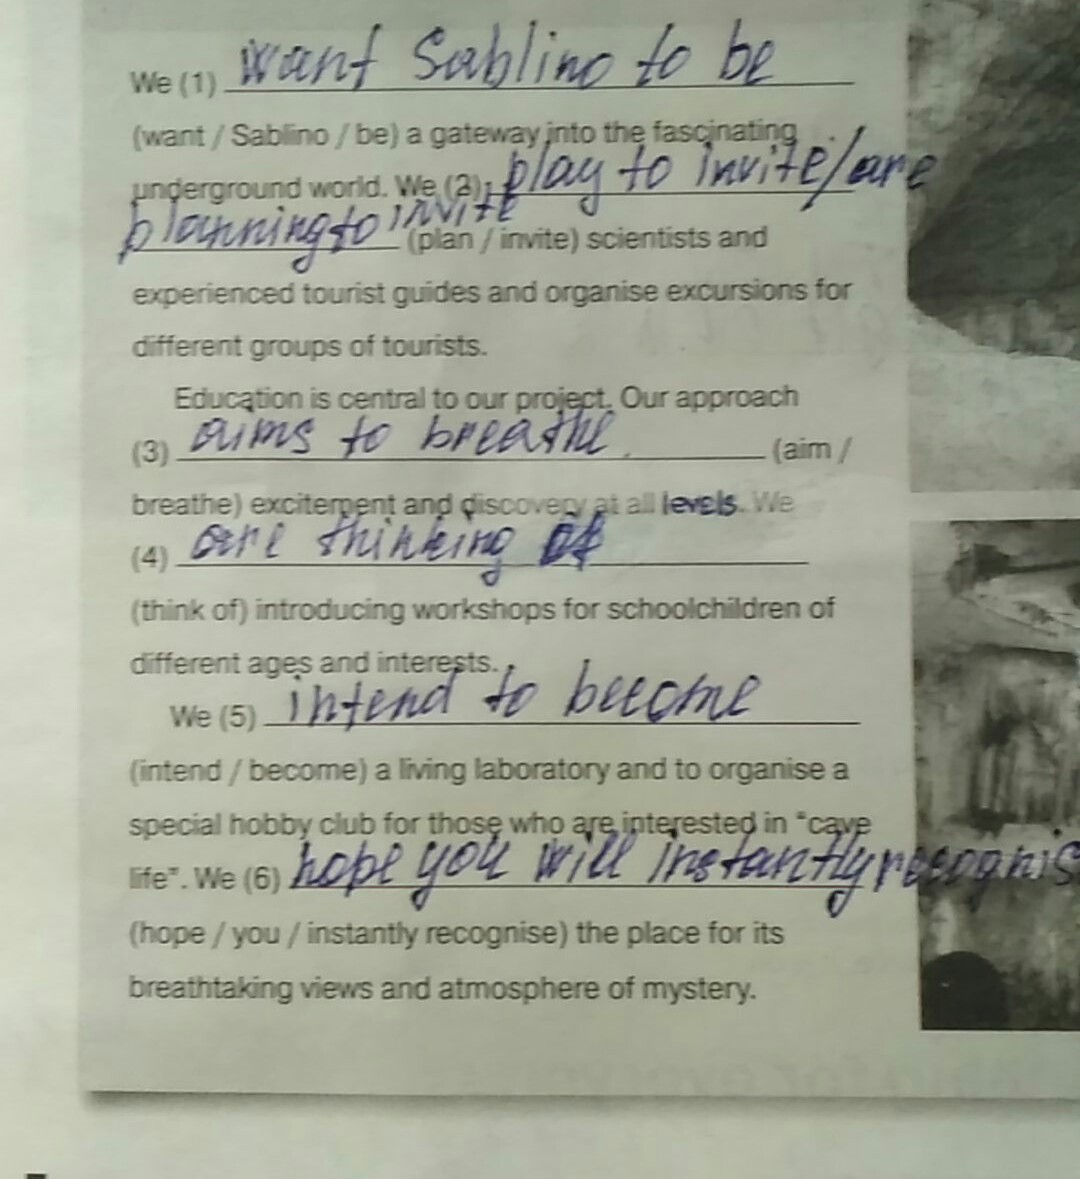 We (1) want Sablino to be
(want / Sablino / be) a gateway into the fascinating
underground world. We (2) play to invite/are
planning to invite (plan / invite) scientists and
experienced tourist guides and organise excursions for
different groups of tourists.
Education is central to our project. Our approach
(3) aims to breathe (aim /
breathe) excitement and discovery at all levels. We
(4) are thinking of
(think of) introducing workshops for schoolchildren of
different ages and interests.
We (5) intend to become
(intend / become) a living laboratory and to organise a
special hobby club for those who are interested in "cave
life". We (6) hope you will instantly recognis
(hope / you / instantly recognise) the place for its
breathtaking views and atmosphere of mystery.